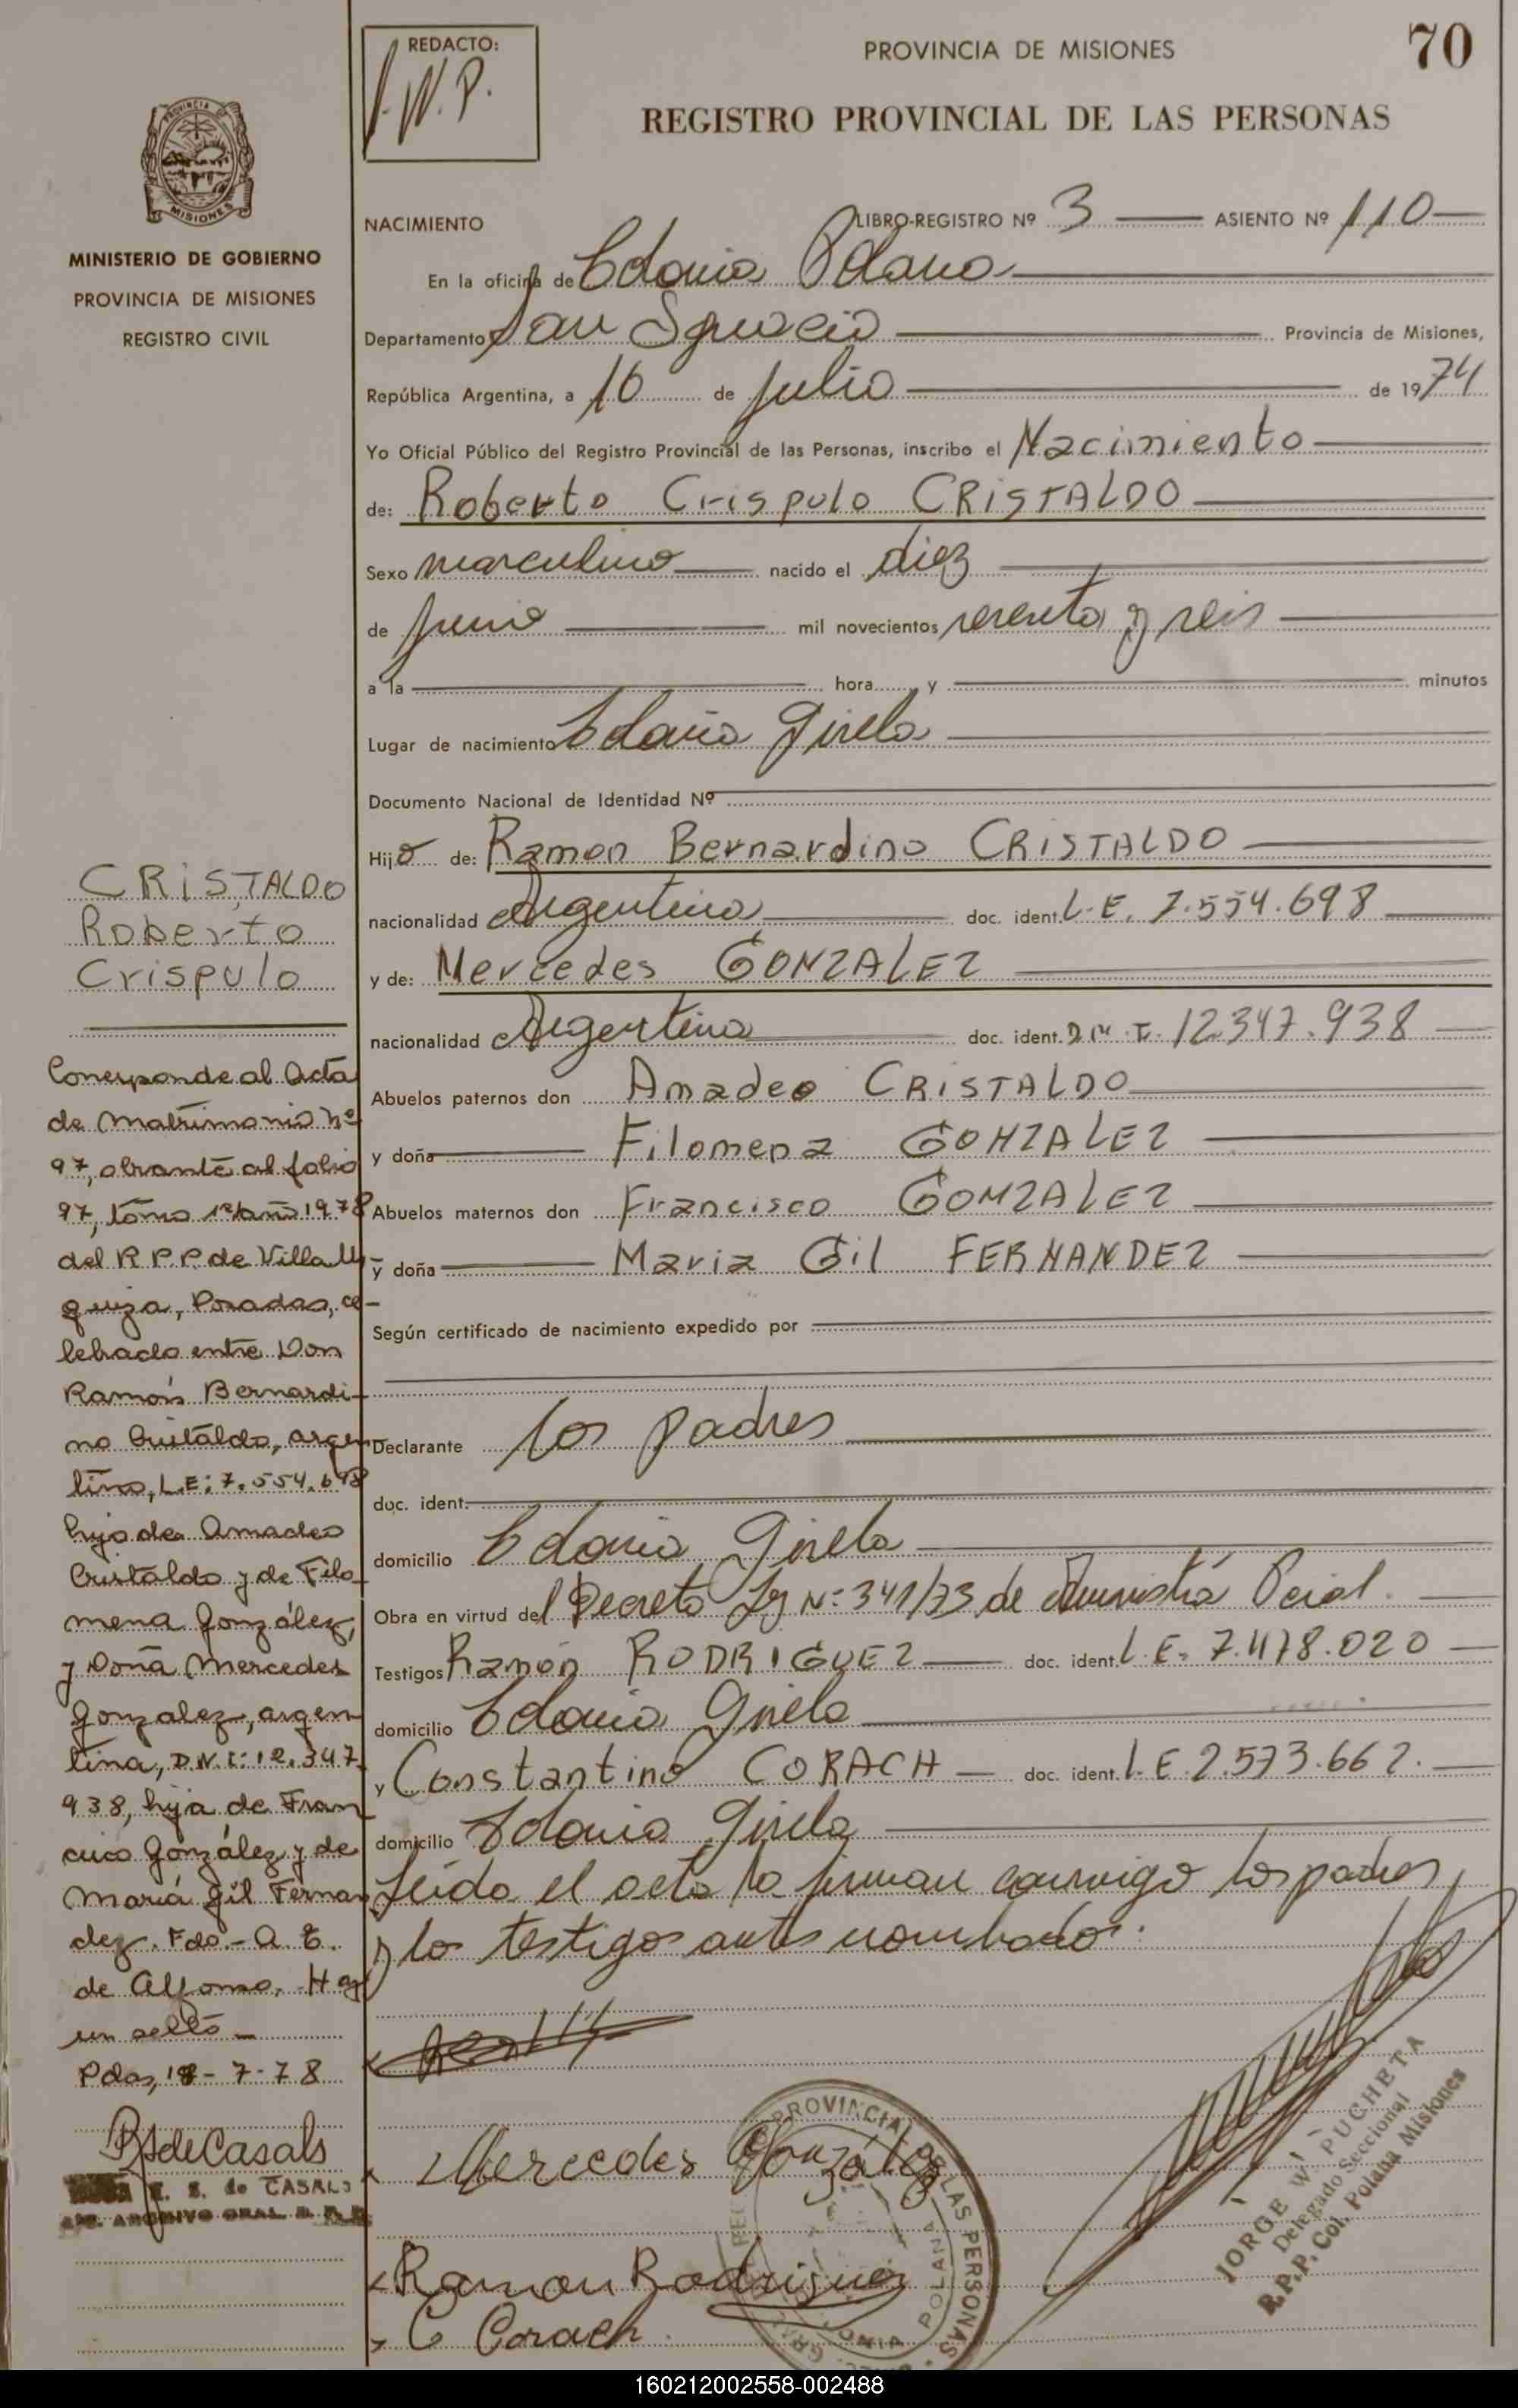 REDACTO:
J.W.P.
PROVINCIA DE MISIONES
70
REGISTRO PROVINCIAL DE LAS PERSONAS
PROVINCIA
MISIONES
MINISTERIO DE GOBIERNO
PROVINCIA DE MISIONES
REGISTRO CIVIL
NACIMIENTO LIBRO-REGISTRO Nº 3 ASIENTO Nº 110
En la oficina de Colonia Polana
Departamento San Ignacio Provincia de Misiones,
República Argentina, a 10 de Julio de 1974
Yo Oficial Público del Registro Provincial de las Personas, inscribo el Nacimiento
de: Roberto Crispulo CRISTALDO
Sexo masculino nacido el diez
de junio mil novecientos sesenta y seis
a la hora y minutos
Lugar de nacimiento Colonia Gisela
Documento Nacional de Identidad Nº
Hijo de: Ramon Bernardino CRISTALDO
nacionalidad Argentina doc. ident. L.E. 7.554.698
y de: Mercedes GONZALEZ
nacionalidad Argentina doc. ident. D.N.I. 12347.938
Abuelos paternos don Amadeo CRISTALDO
y doña Filomena GONZALEZ
Abuelos maternos don Francisco GONZALEZ
y doña Maria Gil FERNANDEZ
Según certificado de nacimiento expedido por
Declarante los padres
doc. ident.
domicilio Colonia Gisela
Obra en virtud del Decreto Ley Nº 341/73 de Amnistía Pcial.
Testigos Ramón RODRIGUEZ doc. ident. L.E. 7.478.020
domicilio Colonia Gisela
y Constantino CORACH doc. ident. L.E. 2.573.662.
domicilio Colonia Gisela
Leída el acta la firman conmigo los padres,
y los testigos antes nombrados.
CRISTALDO
Roberto
Crispulo
Corresponde al Acta
de Matrimonio nº
97, obrante al folio
97, tomo 1º año 1978
del R P P de Villa U
quiza, Posadas, ce-
lebrado entre Don
Ramón Bernardi-
no Cristaldo, argen
tino, L.E: 7.554.698
hijo de Amadeo
Cristaldo y de Filo
mena González,
y Doña Mercedes
Gonzalez, argen
tina, D.N.I: 12.347.
938, hija de Fran
cisco González y de
María Gil Fernan
dez. Fdo.- A. E.
de Alfonso. Hay
un sello
Pdas, 18-7-78
de Casals
E. S. de CASALS
ARCHIVO GRAL. R. P. P.
Mercedes González
Ramon Rodriguez
C Corach
PROVINCIAL DE LAS PERSONAS
COLONIA POLANA
JORGE W. PUCHETA
Delegado Seccional
R.P.P. Col. Polana Misiones
160212002558-002488